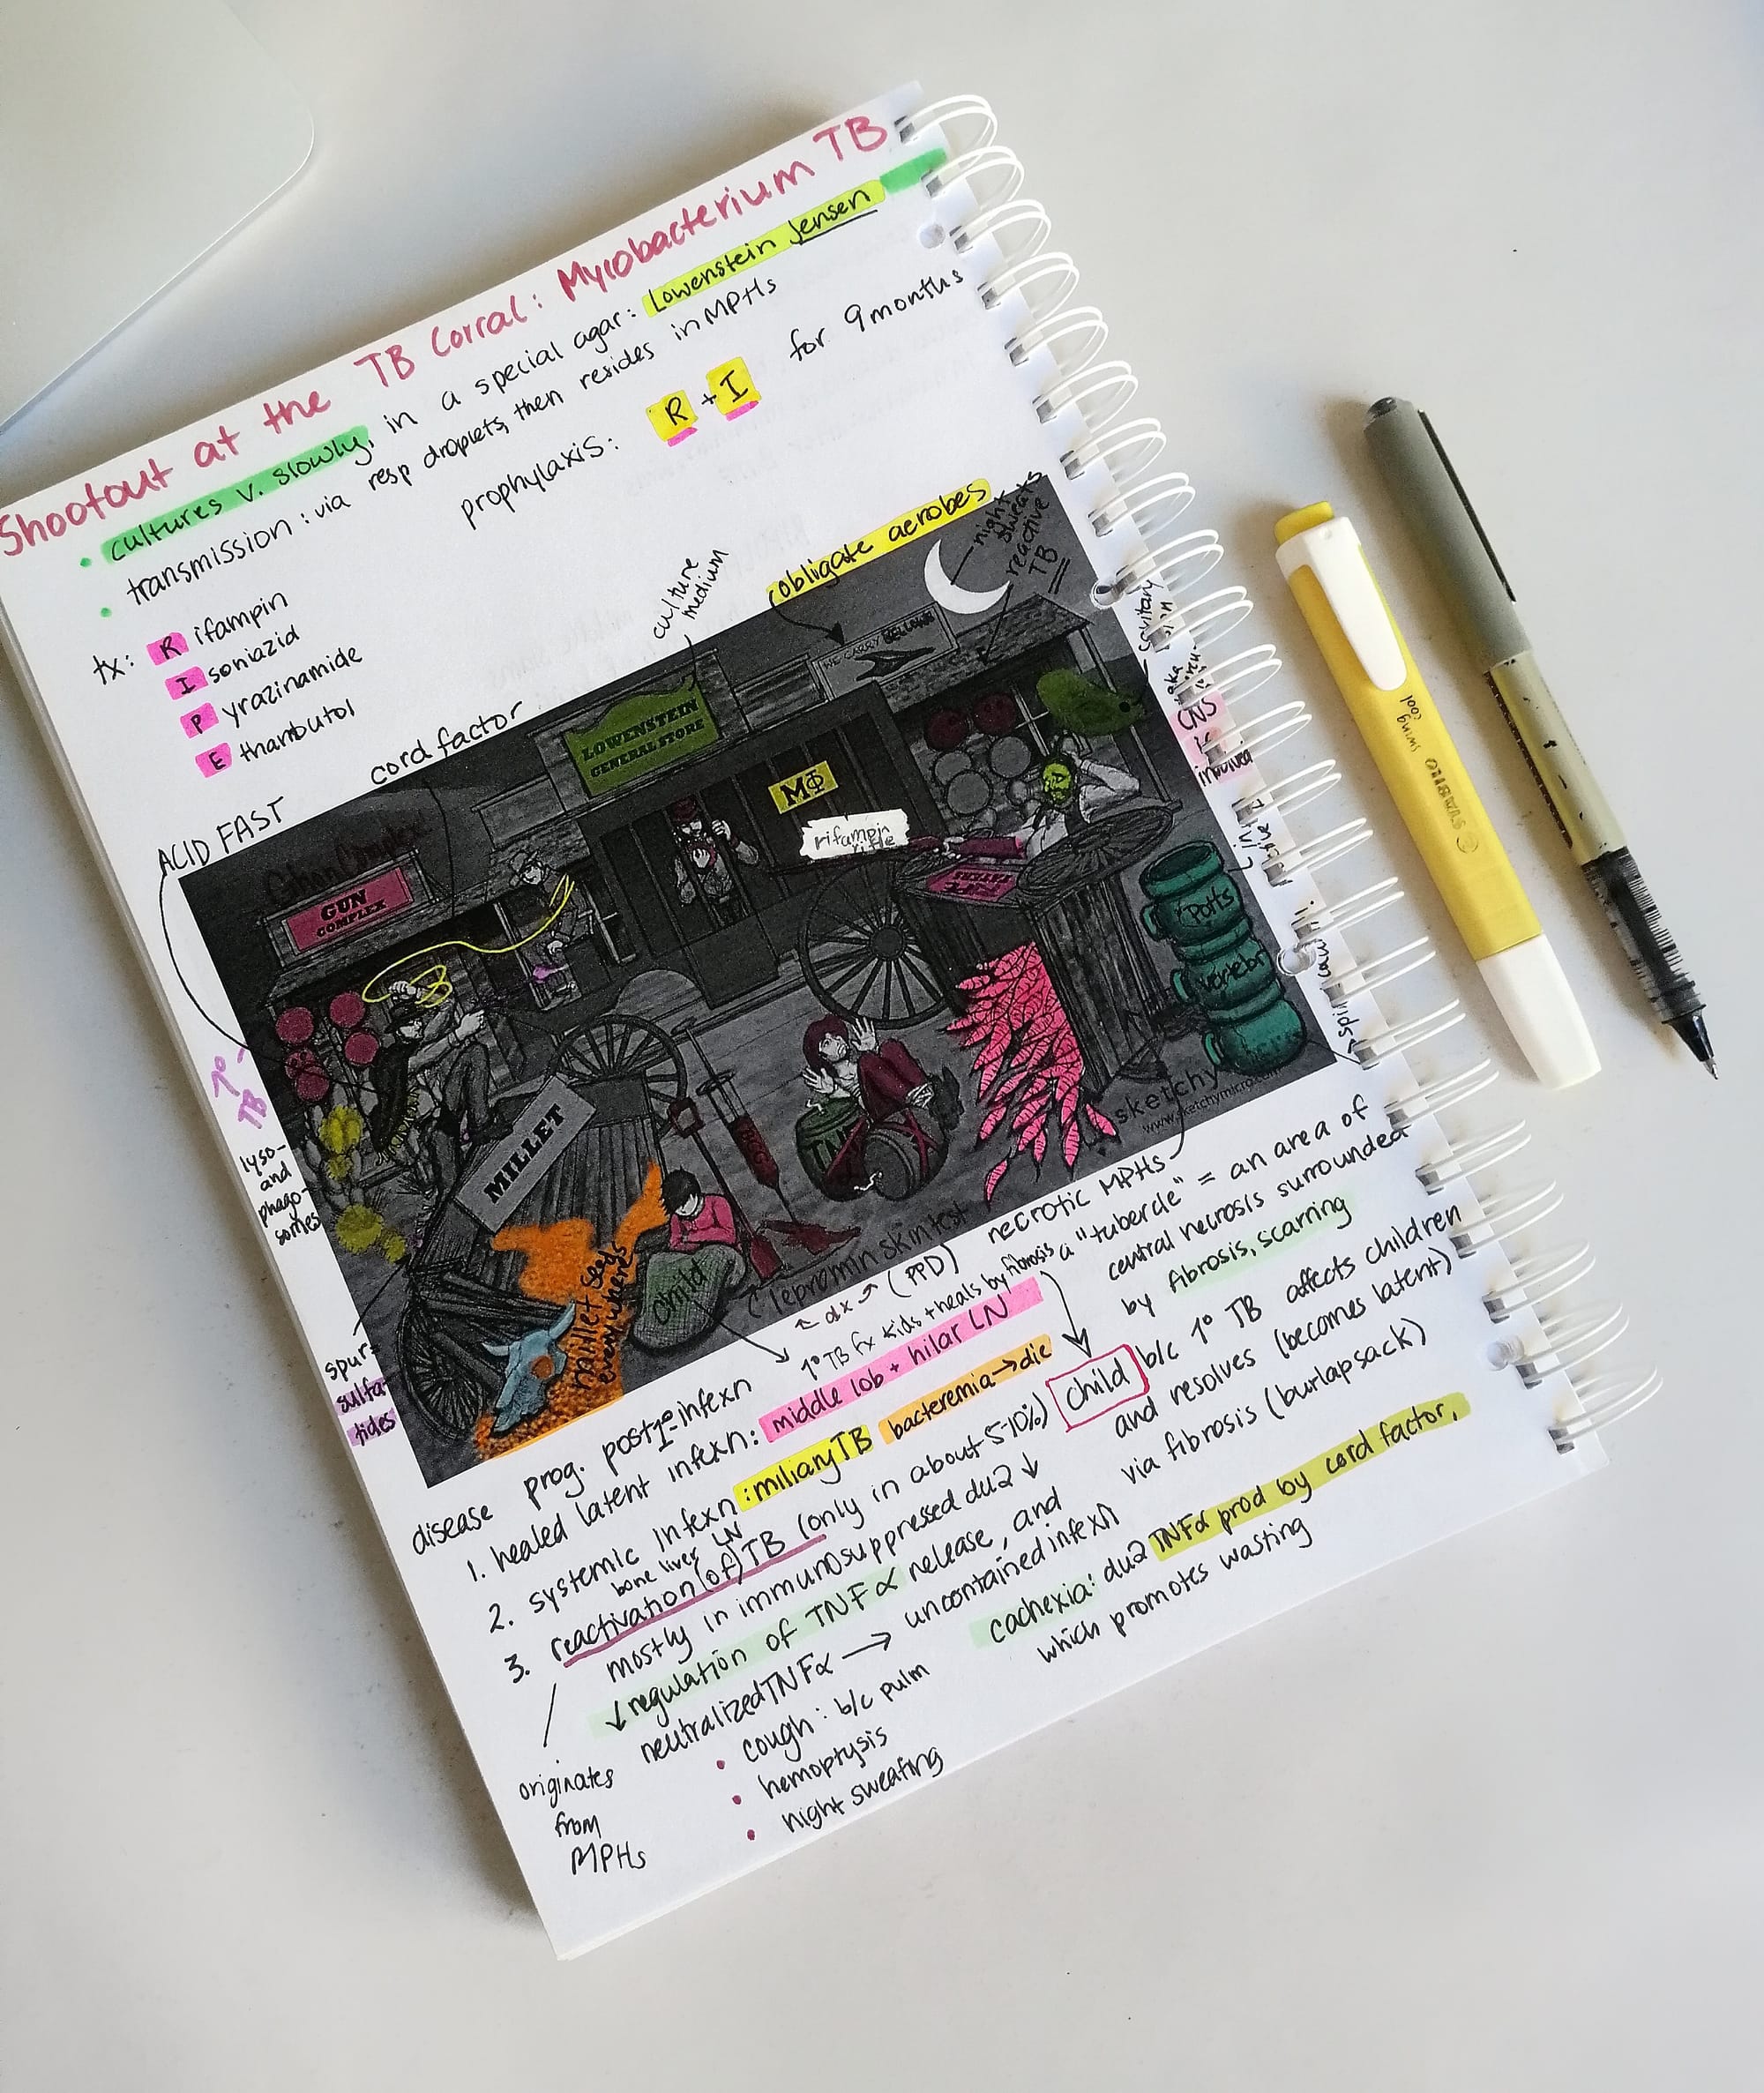 Shootout at the TB Corral: Mycobacterium TB
• cultures v. slowly, in a special agar: Lowenstein Jensen
• transmission: via resp droplets, then resides in MPHs
prophylaxis: R + I for 9 months
tx: R ifampin
I soniazid
P yrazinamide
E thambutol
ACID FAST
cord factor
culture
medium
obligate aerobes
night
sweats
reactive
TB
LOWENSTEIN
GENERAL STORE
WE CARRY BELLOWS
MΦ
rifampin
rifle
Ghon Complex
GUN
COMPLEX
CNS
is
involved
Potts
1°
TB
lyso-
and
phago-
somes
MILLET
BCG
sketchy
www.sketchymicro.com
millet seeds
everywhere
child
spur=
sulfa-
tides
lepromin skin test
← dx → (PPD)
necrotic MPHs
1° TB fx kids + heals by fibrosis
a "tubercle" = an area of
central necrosis surrounded
by fibrosis, scarring
disease prog. post 1° infexn
1. healed latent infexn: middle lob + hilar LN
2. systemic infexn: miliary TB bacteremia → die
bone liver LN
3. reactivation (of) TB (only in about 5-10%)
mostly in immunosuppressed du2 ↓
↓ regulation of TNFα release, and
neutralized TNFα → uncontained infexn
child b/c 1° TB affects children
and resolves (becomes latent)
via fibrosis (burlap sack)
cachexia: du2 TNFα prod by cord factor,
which promotes wasting
originates
from
MPHs
• cough: b/c pulm
• hemoptysis
• night sweating
STABILO
swing
cool